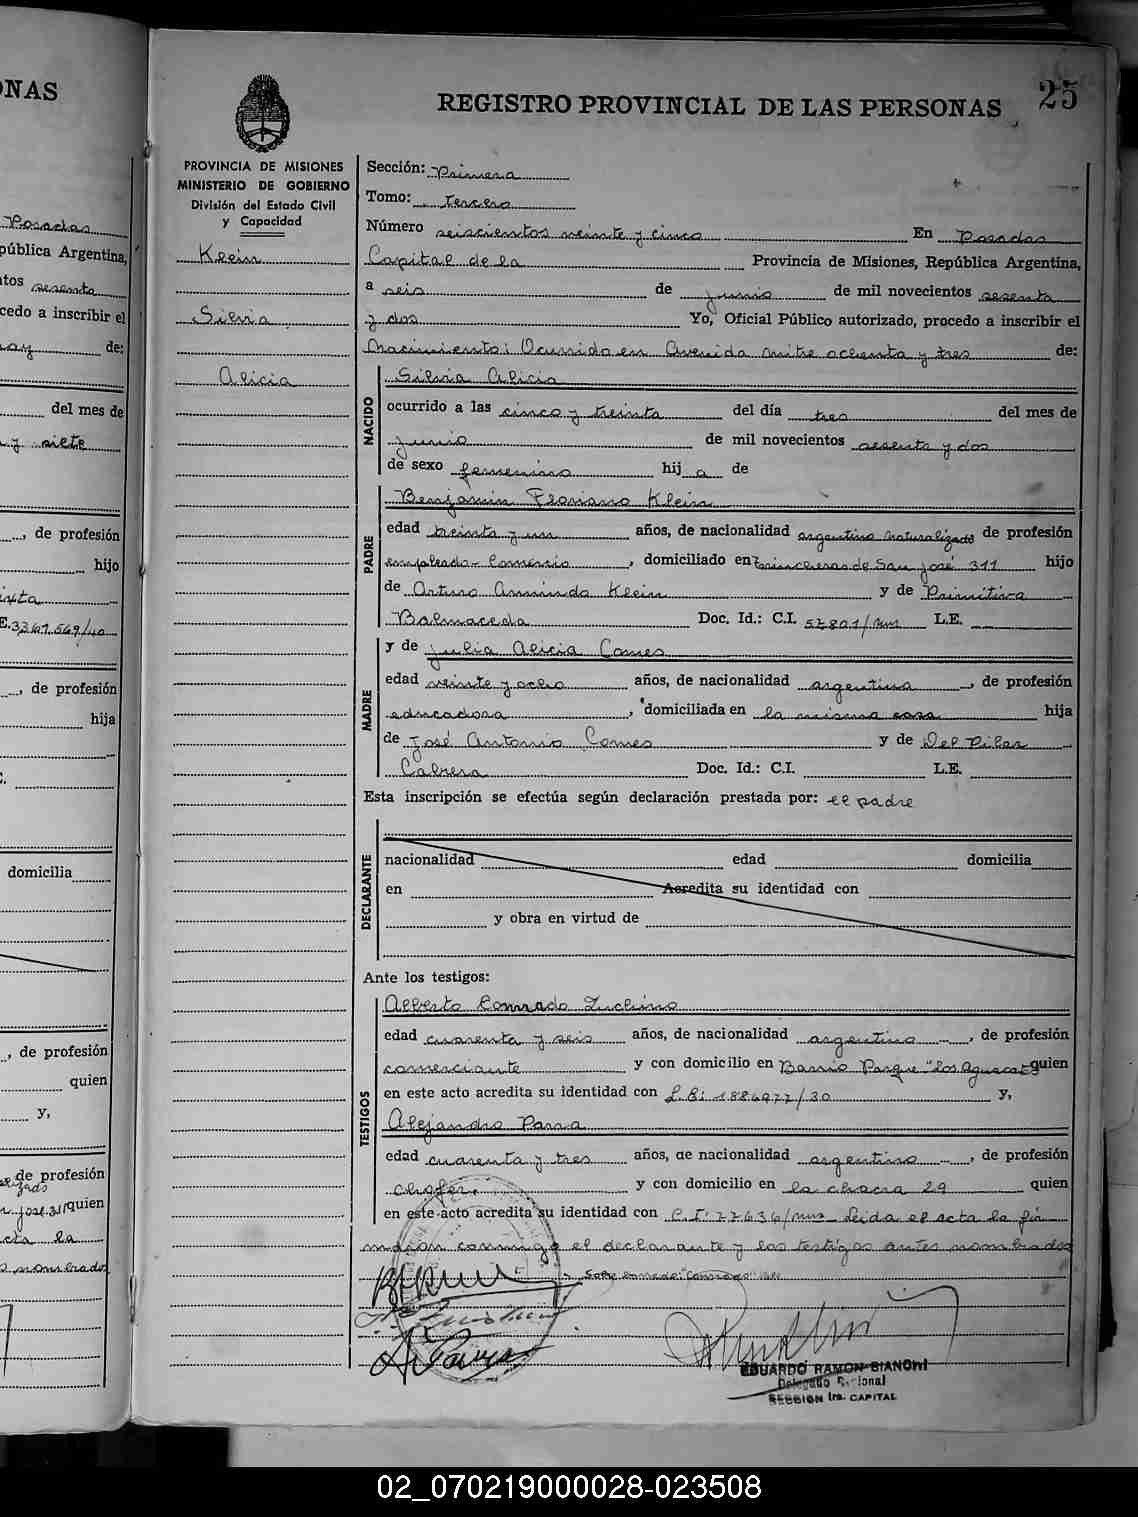 REGISTRO PROVINCIAL DE LAS PERSONAS
25
PROVINCIA DE MISIONES
MINISTERIO DE GOBIERNO
División del Estado Civil
y Capacidad
Klein
Silvia
Alicia
Sección: Primera
Tomo: tercero
Número seiscientos veinte y cinco En Posadas
Capital de la Provincia de Misiones, República Argentina,
a seis de junio de mil novecientos sesenta
y dos Yo, Oficial Público autorizado, procedo a inscribir el
Nacimiento: Ocurrido en Avenida Mitre ochenta y tres de:
NACIDO
Silvia Alicia
ocurrido a las cinco y treinta del día tres del mes de
junio de mil novecientos sesenta y dos
de sexo femenino hij a de
PADRE
Benjamin Floriano Klein
edad treinta y un años, de nacionalidad argentino naturalizado de profesión
empleado-Comercio, domiciliado en Trincheras de San José 311 hijo
de Arturo Armindo Klein y de Primitiva
Balmaceda Doc. Id.: C.I. 57801/mns L.E.
MADRE
y de Julia Alicia Comes
edad veinte y ocho años, de nacionalidad argentina, de profesión
educadora, domiciliada en la misma casa hija
de José Antonio Comes y de Del Pilar
Cabrera Doc. Id.: C.I. L.E.
Esta inscripción se efectúa según declaración prestada por: el padre
DECLARANTE
nacionalidad edad domicilia
en Acredita su identidad con
y obra en virtud de
Ante los testigos:
TESTIGOS
Alberto Conrado Zuchino
edad cuarenta y seis años, de nacionalidad argentino, de profesión
comerciante y con domicilio en Barrio Parque "Los Aguacates" quien
en este acto acredita su identidad con L.E: 1886977/30 y,
Alejandro Parra
edad cuarenta y tres años, de nacionalidad argentino, de profesión
chofer. y con domicilio en la chacra 29 quien
en este acto acredita su identidad con C.I: 27636/mns Leida el acta la fir
maron conmigo el declarante y los testigos antes nombrados
Sobre borrado: "Conrado" Vale
EDUARDO RAMON BIANCHI
Delegado
SECCION 1ra. CAPITAL
ONAS
Posadas
pública Argentina,
ntos sesenta
cedo a inscribir el
de:
del mes de
y siete
, de profesión
hijo
E. 3361.569/40
, de profesión
hija
domicilia
, de profesión
quien
y,
de profesión
José 311 quien
acta la
nombrados
02_070219000028-023508